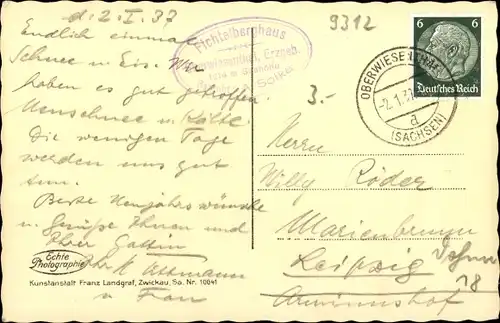 d. 2. I. 37
Endlich einmal
Schnee u. Eis. Wir
haben es gut getroffen.
Neuschnee u. Kälte.
Die wenigen Tage
werden uns gut
tun.
Beste Neujahrswünsche
u. Grüße Ihnen und
Ihrer Gattin
Ihr
u. Frau
Echte
Photographie
Kunstanstalt Franz Landgraf, Zwickau, Sa. Nr. 10041
Fichtelberghaus
Oberwiesenthal, Erzgeb.
9312
3.-
6 6
Deutsches Reich
OBERWIESENTHAL
-2.1.37
d
(SACHSEN)
Herrn
Willy Röder
Marienbrunn
Leipzig
Arminiushof 18